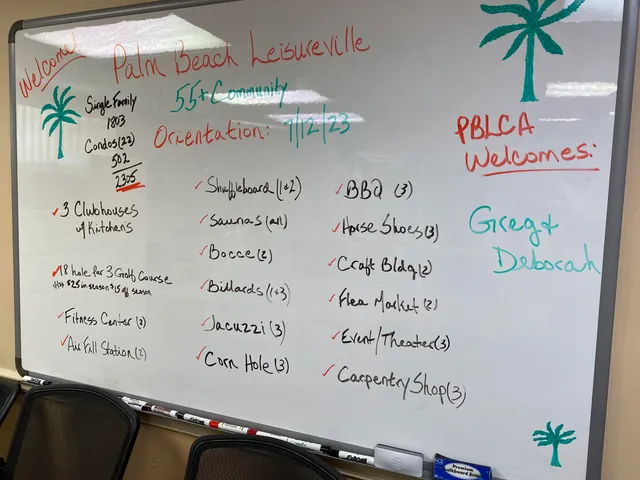 Welcome!
Palm Beach Leisureville
55+ Community
Orientation: 1/12/23
Single Family
1803
Condos(22)
502
2305
✓3 Clubhouses
w/ Kitchens
✓18 hole par 3 Golf Course
$25 in season $15 off season
✓Fitness Center (2)
✓Air Fill Station(2)
✓Shuffleboard (1+2)
✓Saunas (all)
✓Bocce (2)
✓Billards (1+3)
✓Jacuzzi (3)
✓Corn Hole (3)
✓BBQ (3)
✓Horse Shoes(3)
✓Craft Bldg(2)
✓Flea Market (2)
✓Event/Theater(3)
✓Carpentry Shop(3)
PBLCA
Welcomes:
Greg &
Deborah
EXPO
Premium